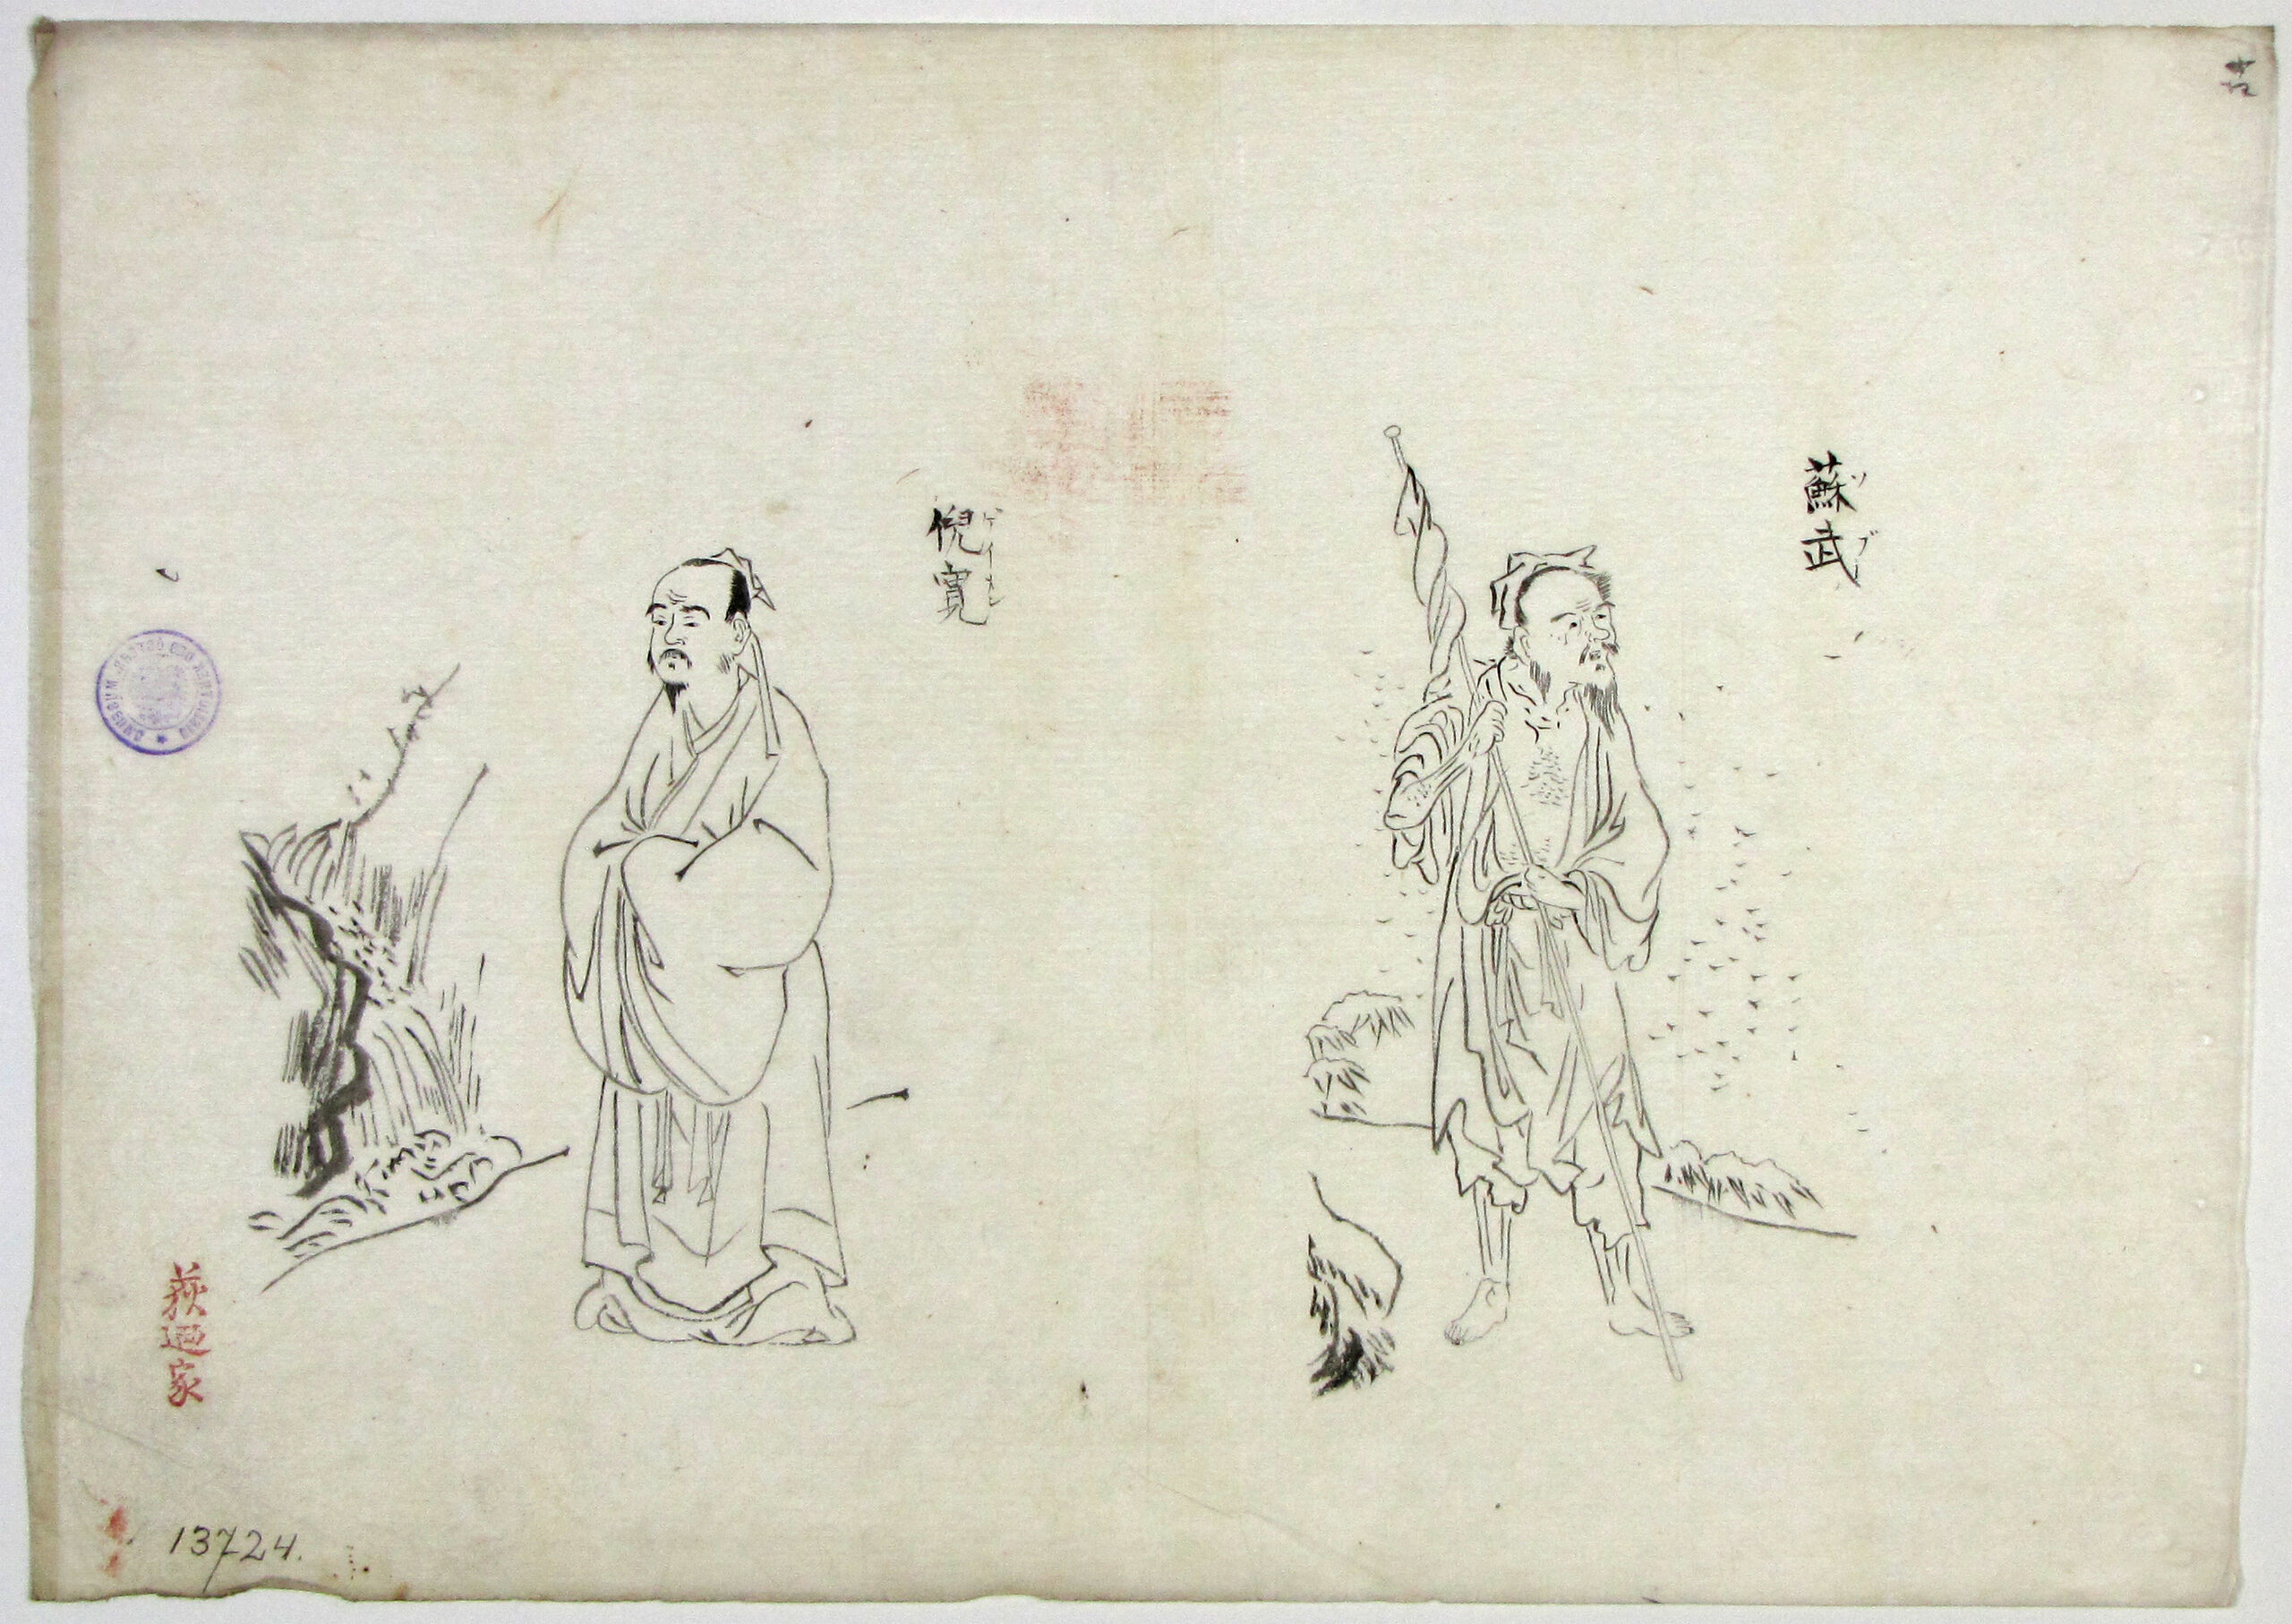 蘇武
ソブ
倪寛
ゲイカン
萩廼家
13724.